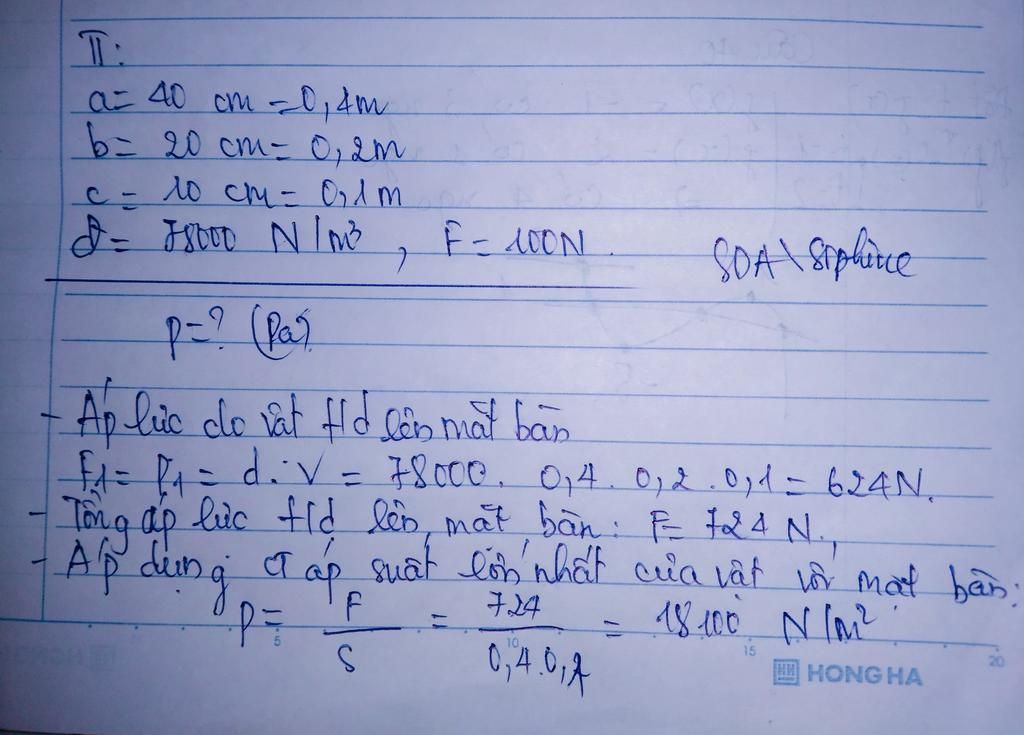 II:
a= 40 cm = 0,4m
b= 20 cm= 0,2m
c = 10 cm= 0,1m
d= 78000 N/m³, F= 100N.
P=? (Pa).
- Áp lực do vật t/d lên mặt bàn
F1= P1 = d.V = 78000. 0,4. 0,2.0,1= 624N.
- Tổng áp lực t/d lên mặt bàn: F= 724 N.
- Áp dụng CT áp suất lớn nhất của vật với mặt bàn:
P= F/S = 724/0,4.0,1 = 18100 N/m²
5 10 15 20
HONG HA